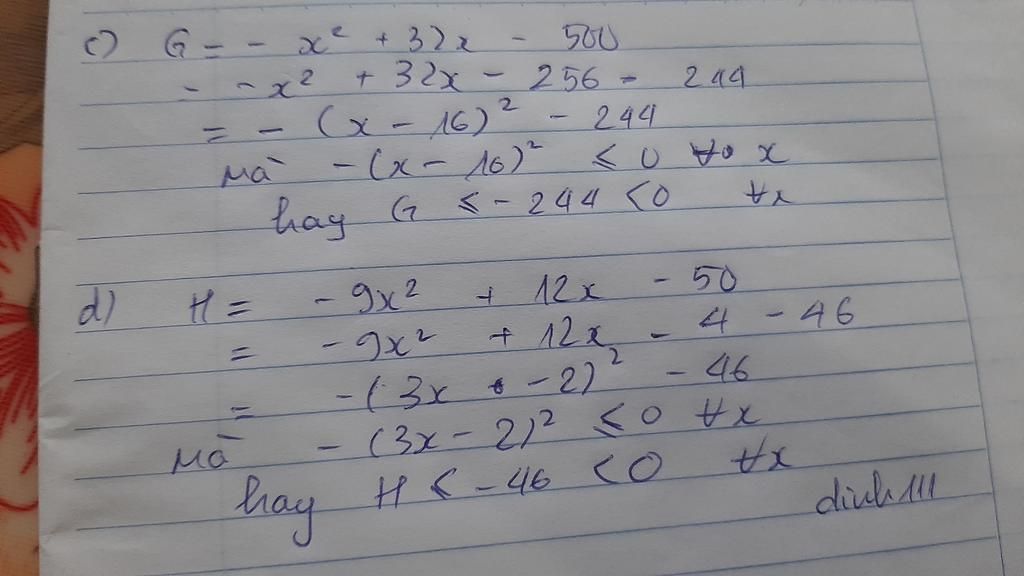 c) G = - x² + 32x - 500
= - x² + 32x - 256 - 244
= - (x - 16)² - 244
mà - (x - 16)² ≤ 0 ∀ x
hay G ≤ - 244 < 0 ∀x
d) H = - 9x² + 12x - 50
= - 9x² + 12x - 4 - 46
= - (3x - 2)² - 46
mà - (3x - 2)² ≤ 0 ∀x
hay H ≤ - 46 < 0 ∀x
dinh111